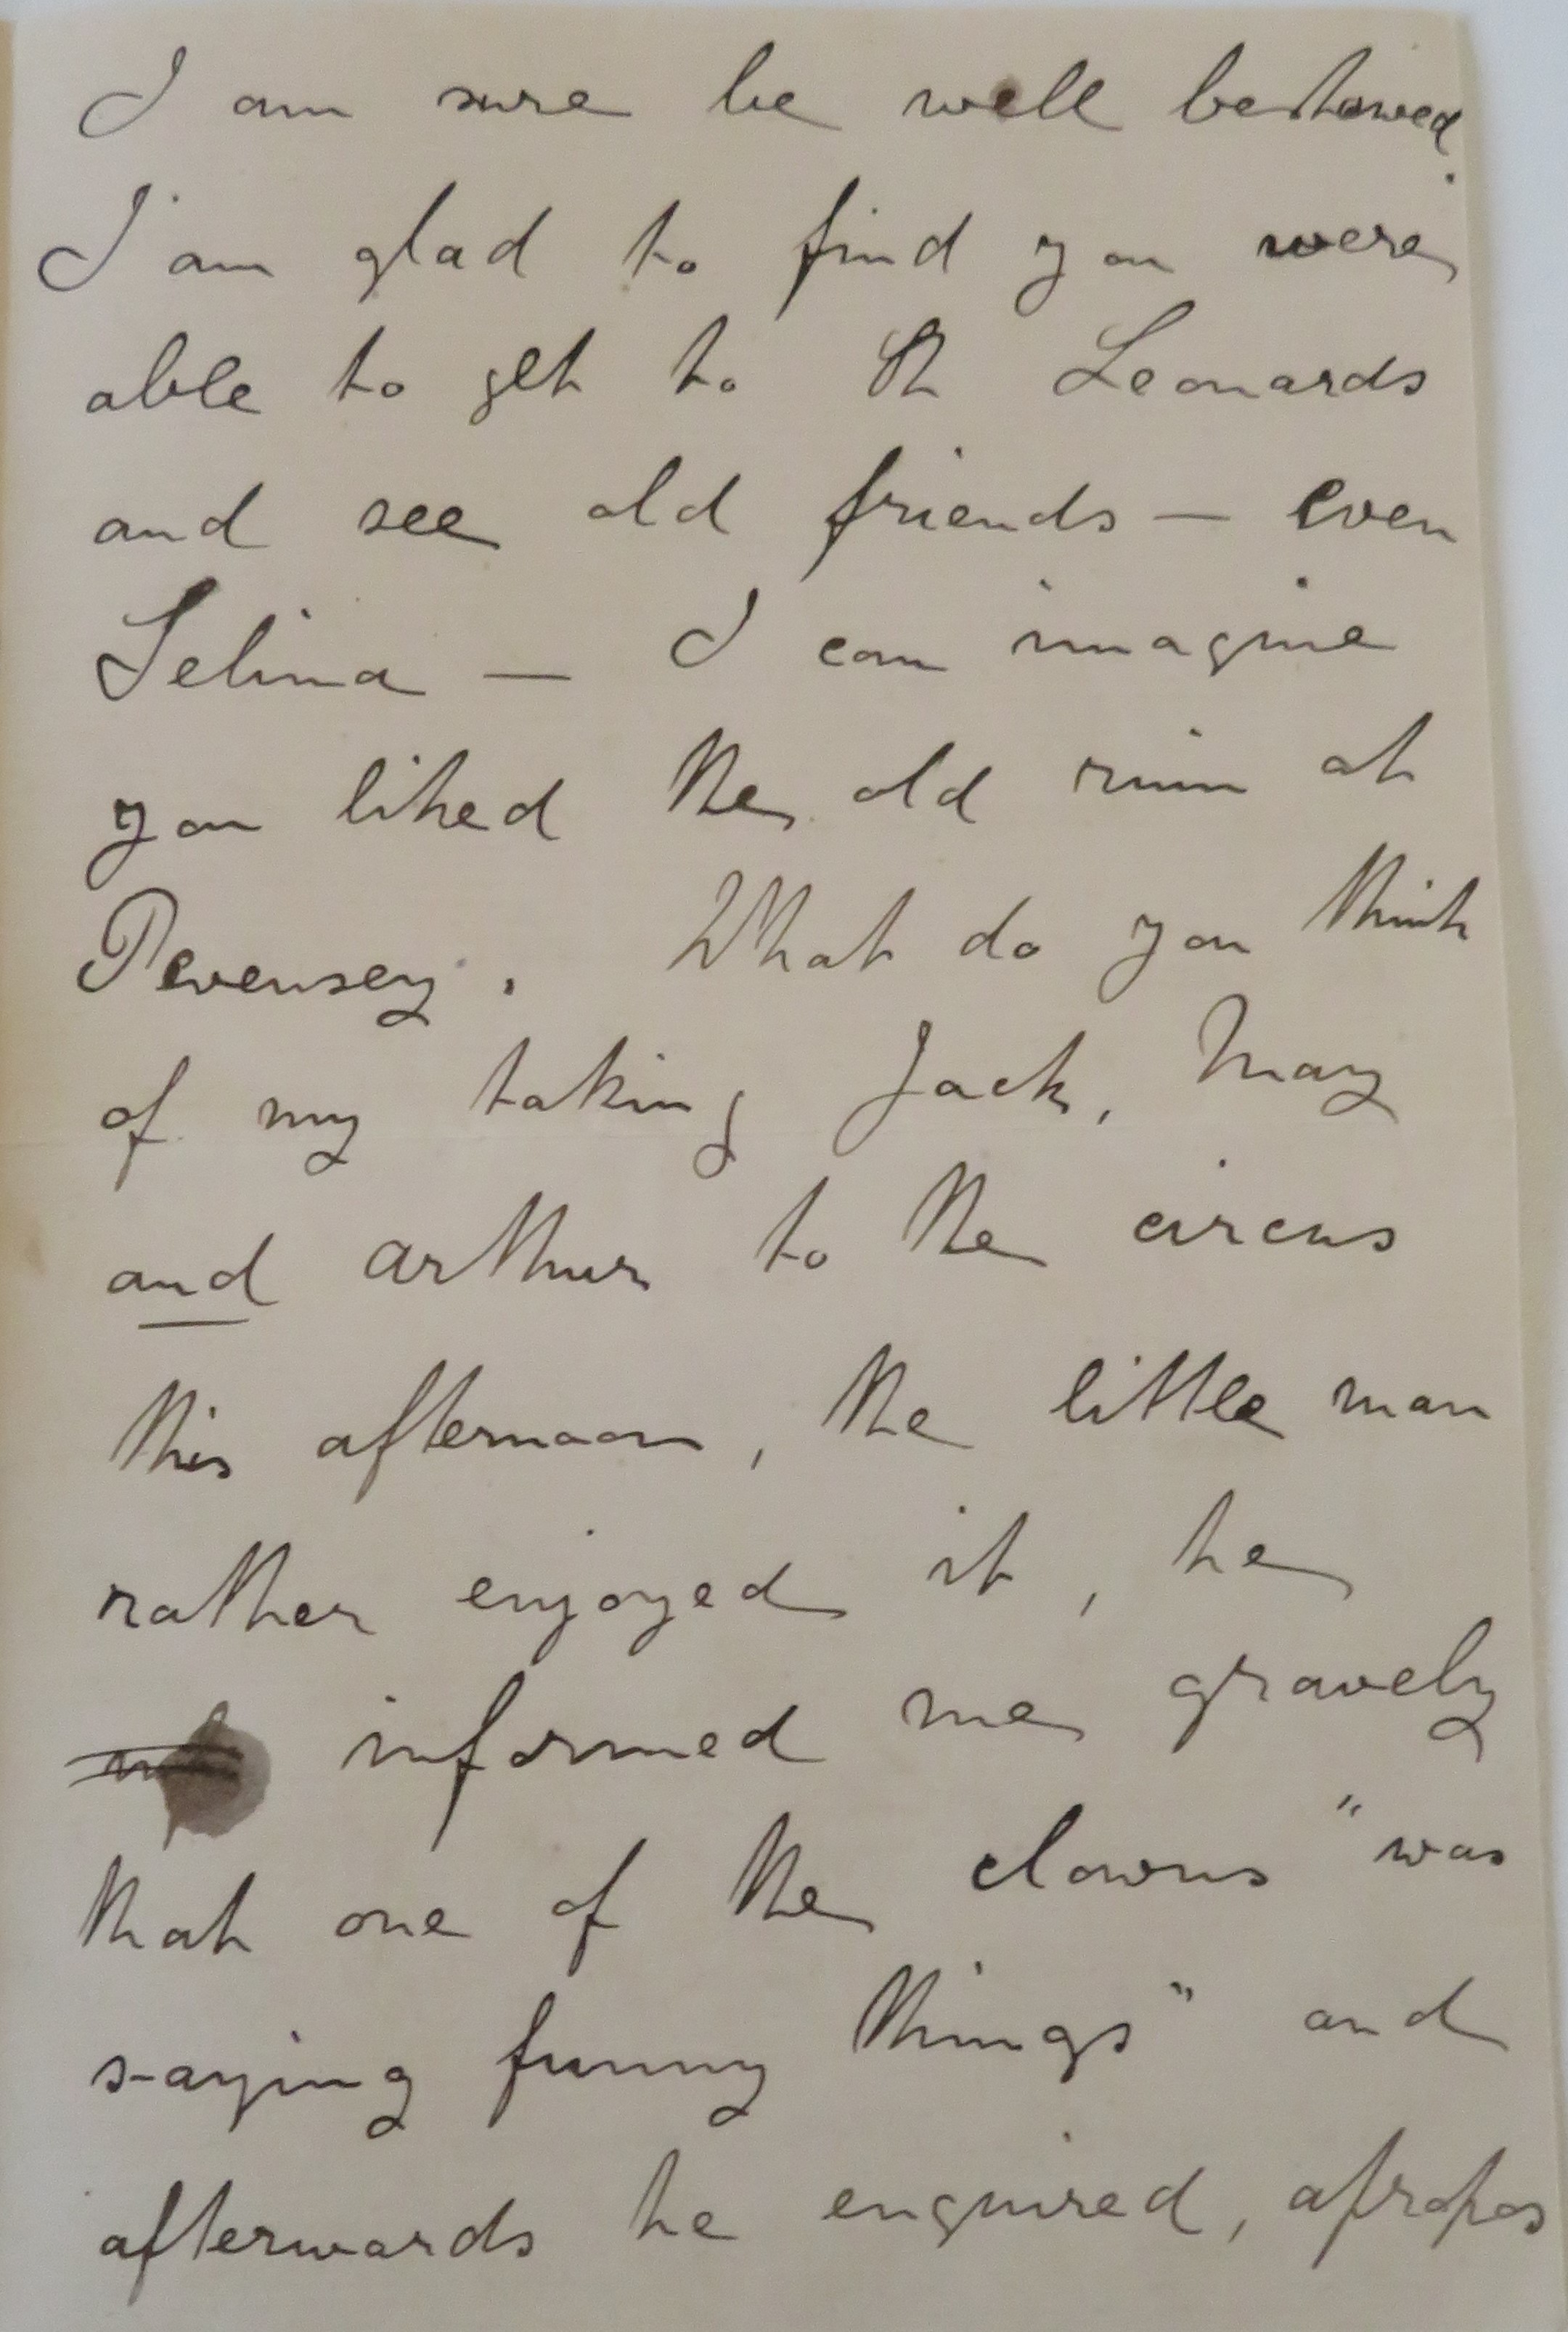 I am sure be well bestowed.
I am glad to find you were
able to get to St Leonards
and see old friends — even
Selina — I can imagine
you liked the old ruin at
Pevensey. What do you think
of my taking Jack, May
and Arthur to the circus
this afternoon, the little man
rather enjoyed it, he
informed me gravely
that one of the clowns "was
saying funny things" and
afterwards he enquired, apropos